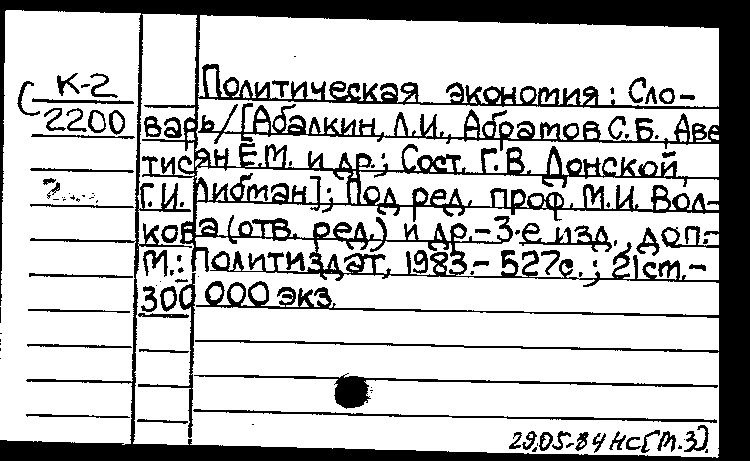 К-2
С 2200
Политическая экономия: Сло-
варь/[Абалкин, Л.И., Абратов С.Б., Аве
тисян Е.М. и др.; Сост. Г.В. Донской,
Г.И. Либман]; Под ред. проф. М.И. Вол-
кова (отв. ред.) и др.-3-е изд., доп.-
М.: Политиздат, 1983.- 527с.; 21ст.-
300 000 экз.
29.05-84 НС[М.З].